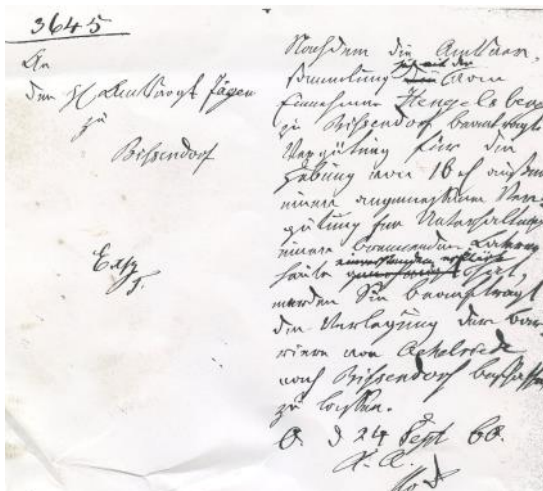 3645
An
den H Amtsvogt Jägen
zu
Bissendorf
Exp
Nachdem die Amtsver,
sammlung die vom
Einnehmer Hengelsberg
zu Bissendorf beantragte
Vergütung für die
Hebung von 16 außer
einer angemessenen Ver-
gütung für Unterhaltung
einer brennenden Laterne
heute hat,
werden Sie beauftragt
die Verlegung der Bar-
riere von
nach Bissendorf beschaffen
zu lassen.
O. d 24 Sept 60.
K. A.